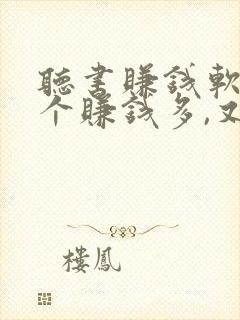 聽書賺錢軟
个賺錢多,又
樓鳳